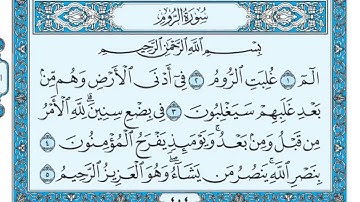 سُورَةُ الرُّومِ
بِسْمِ اللَّهِ الرَّحْمَٰنِ الرَّحِيمِ
الٓمٓ ١ غُلِبَتِ ٱلرُّومُ ٢ فِىٓ أَدْنَى ٱلْأَرْضِ وَهُم مِّنۢ
بَعْدِ غَلَبِهِمْ سَيَغْلِبُونَ ٣ فِى بِضْعِ سِنِينَ ۗ لِلَّهِ ٱلْأَمْرُ
مِن قَبْلُ وَمِنۢ بَعْدُ ۚ وَيَوْمَئِذٍ يَفْرَحُ ٱلْمُؤْمِنُونَ ٤
بِنَصْرِ ٱللَّهِ ۚ يَنصُرُ مَن يَشَآءُ ۖ وَهُوَ ٱلْعَزِيزُ ٱلرَّحِيمُ ٥
٤٠٤